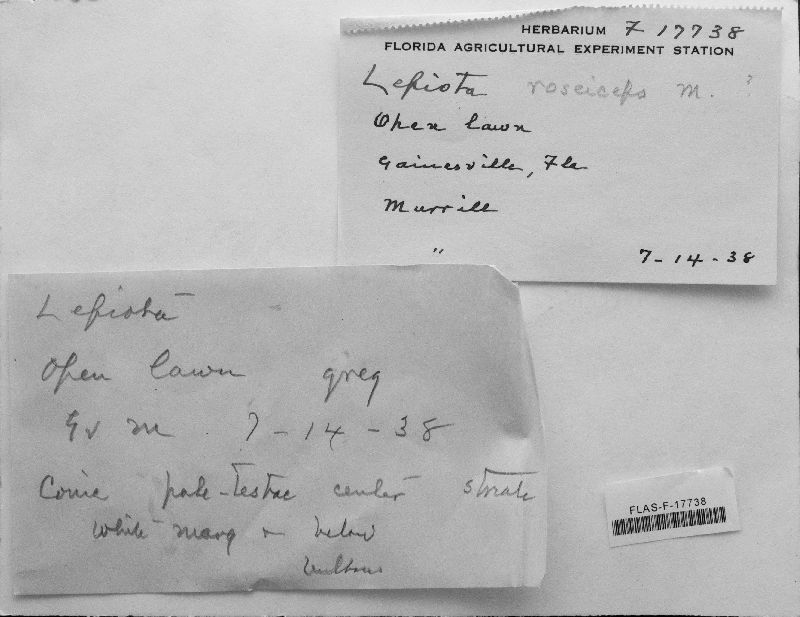 HERBARIUM F 17738
FLORIDA AGRICULTURAL EXPERIMENT STATION
Lepiota roseiceps M. ?
Open lawn
Gainesville, Fla
Murrill
" 7-14-38
Lepiota
Open lawn greg
Gv M 7-14-38
Conic pale-testac center striate
white marg & below
bulbous
FLAS-F-17738